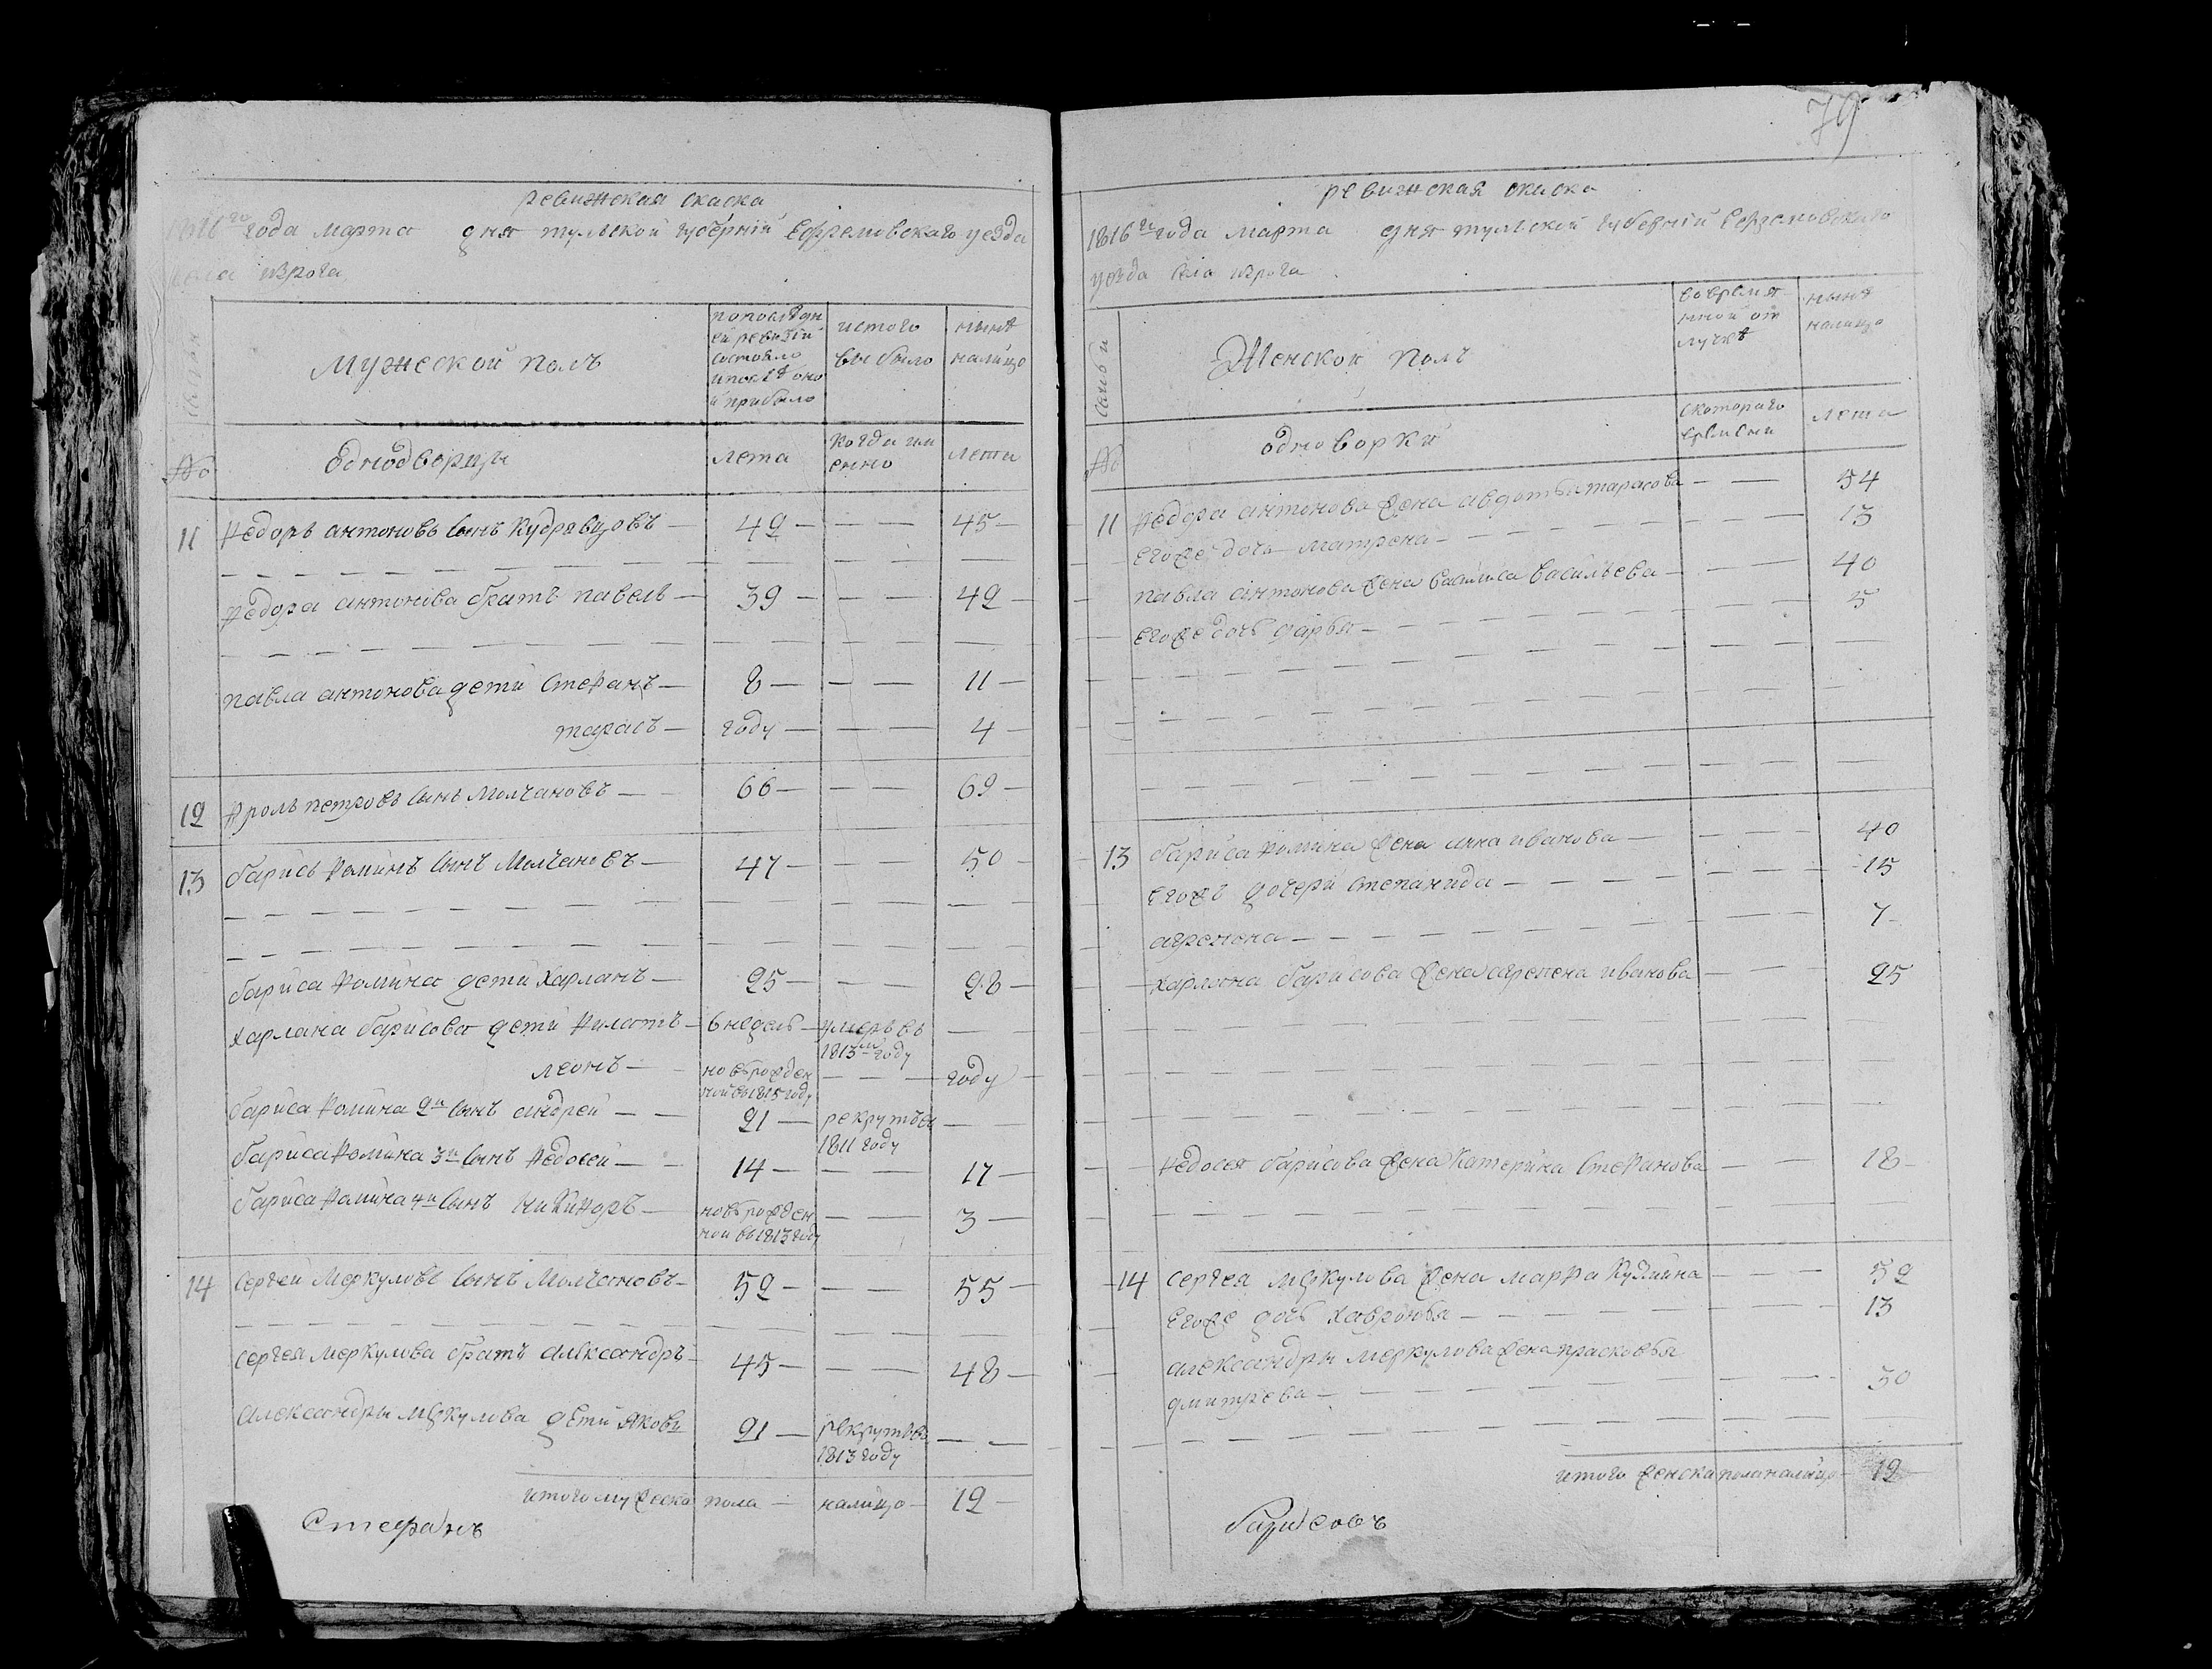 79
ревижская скаска
1816го года марта дня тульской губернии Ефремовского уезда
села изрога
Мужеской полъ
пополѣдн
ей ревизии
состояло
ипослѣ оно
й прибыло
истого
выбыло
нынѣ
налицо
№
Однодворцы
лета
когда им
енно
лета
11 Ѳедоръ антоновъ сынъ Кудрявцовъ — 42 — — — 45 —
Ѳедора антонова братъ павелъ — 39 — — — 42 —
павла антонова дети Стеѳанъ — 8 — — — 11 —
тарасъ — году — — — 4 —
12 Ѳролъ петровъ сынъ Молчановъ — 66 — — — 69 —
13 барисъ Ѳоминъ сынъ Молчановъ — 47 — — — 50 —
бариса Ѳомина дети Харланъ — 25 — — — 28 —
харлана барисова дети Ѳилатъ — 6 недель — умеръ въ
1813м году
леонъ — новърожден
ной въ 1815 году — — году
бариса Ѳомина 2й сынъ андрей — 21 — рекрутъ въ
1811 году
бариса Ѳомина 3й сынъ Ѳедосеи — 14 — — — 17 —
бариса Ѳомина 4й сынъ Никиѳоръ — новърожден
ной въ 1813 году — — 3 —
14 Сергеи Меркуловъ сынъ Молчановъ — 52 — — — 55 —
Сергея Меркулова братъ александръ — 45 — — — 48 —
Александры меркулова дети яковъ 21 — рекрутъ въ
1813 году
итого мужеска пола — налицо — 12 —
Стефанъ
ревижская скаска
1816го года марта дня тульской губерний Ефремовского
уезда села изрога
семьи
Женской полъ
вовремя
нной от
лучкѣ
нынѣ
налицо
№
одноворки
скотораго
времени
лета
11 Ѳедора антонова жена авдотья тарасова — — 54
Егоже дочь матрена — 13
павла антонова жена василиса васильева — 40
Егоже дочь дарья — 5
13 бариса Ѳомина жена анна иванова — 40
Егожъ дочери степанида — 15
агремена — 7
Харлана барисова жена агрепена иванова 25
Ѳедосея барисова жена Катерина Стеѳанова 18
14 Сергея меркулова жена марѳа Кузмина 52
Егоже дочь хавронья — 13
александры меркулова жена прасковья
дмитрева — 50
итого женска пола налицо — 12
барисовъ